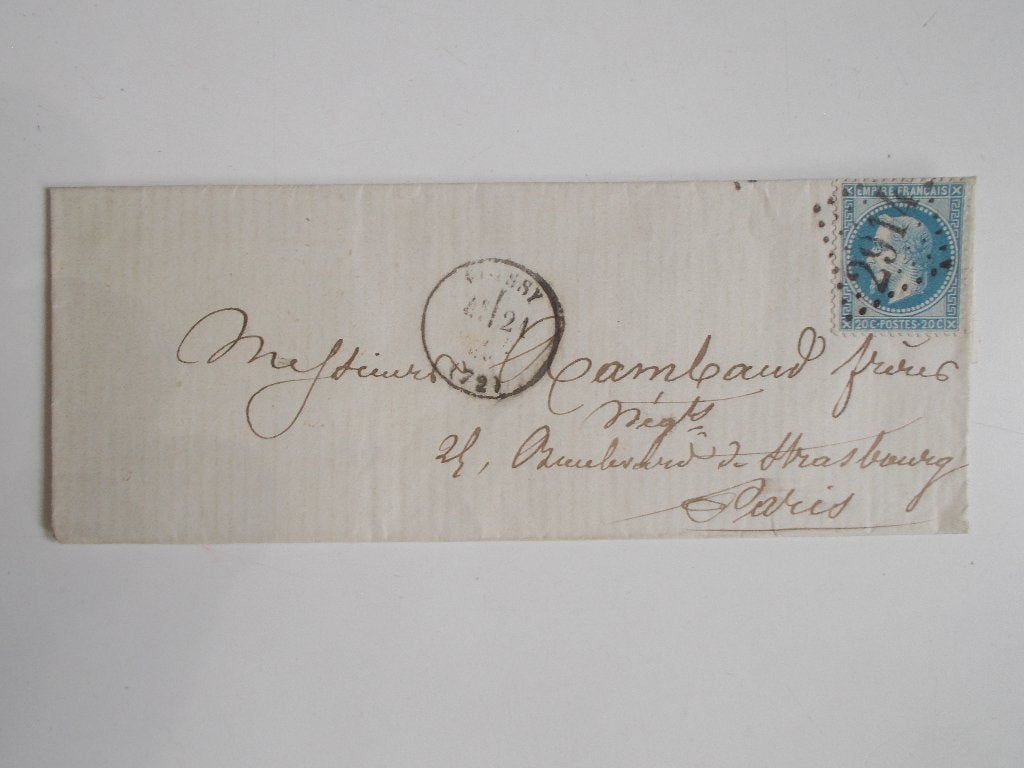 EMPIRE FRANÇAIS
2914
20C-POSTES-20C
POISSY
21
(72)
Messieurs Rambaud frères
Négts
25, Boulevard de Strasbourg
Paris